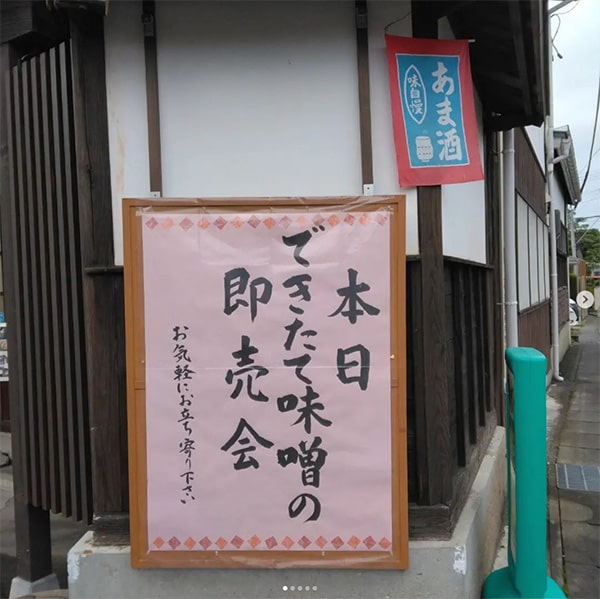 本日
できたて味噌の
即売会
お気軽にお立ち寄り下さい
あま酒
味自慢